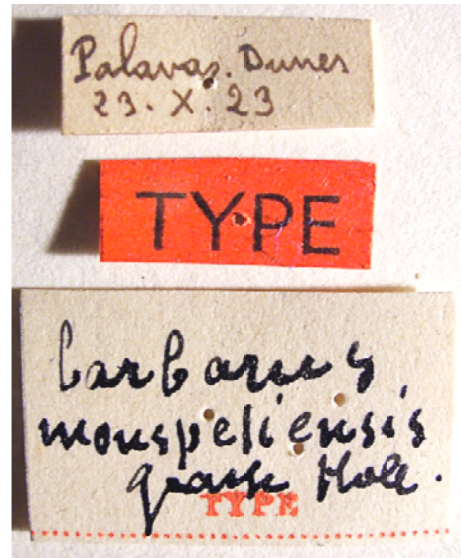 Palavas. Dunes
23. X. 23
TYPE
barbarus
monspeliensis
TYPE